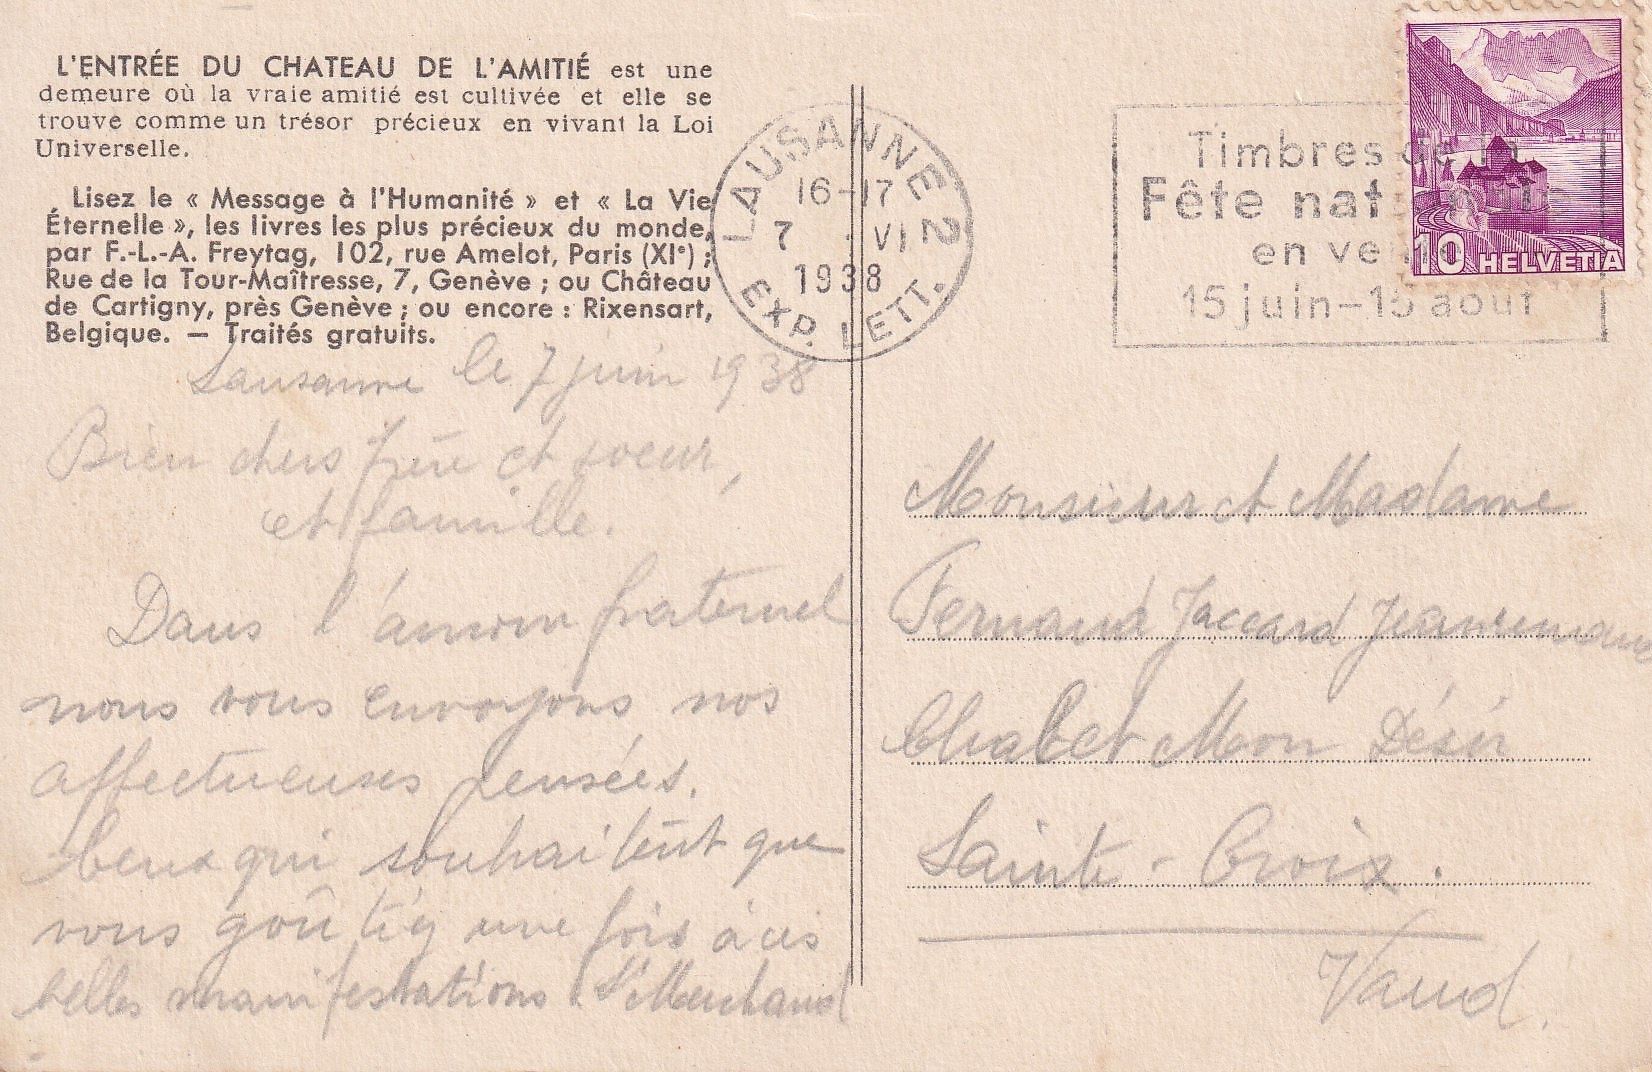 L'ENTRÉE DU CHATEAU DE L'AMITIÉ est une
demeure où la vraie amitié est cultivée et elle se
trouve comme un trésor précieux en vivant la Loi
Universelle.
Lisez le « Message à l'Humanité » et « La Vie
Éternelle », les livres les plus précieux du monde,
par F.-L.-A. Freytag, 102, rue Amelot, Paris (XIe) ;
Rue de la Tour-Maîtresse, 7, Genève ; ou Château
de Cartigny, près Genève ; ou encore : Rixensart,
Belgique. — Traités gratuits.
Lausanne le 7 juin 1938
Bien chers frère et soeur,
et famille.
Dans l'amour fraternel
nous vous envoyons nos
affectueuses pensées.
Ceux qui souhaitent que
vous goûtiez une fois à ces
belles manifestations
LAUSANNE 2
16-17
7 . VI
1938
EXP. LETT.
Timbres de la
Fête nationale
en vente
15 juin-15 aout
10 HELVETIA
Monsieur et Madame
Fernand Jaccard Jeanrenaud
Chalet Mon Désir
Sainte-Croix.
Vaud.